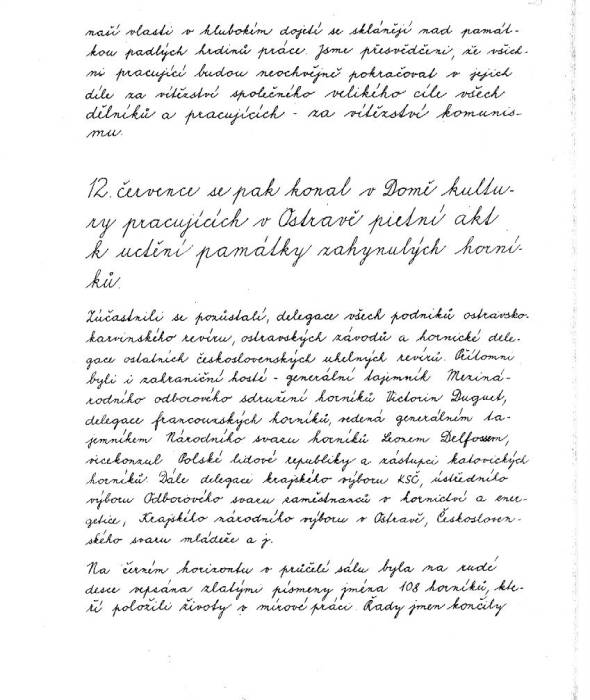 naší vlasti v hlubokém dojetí se sklánějí nad památ-
kou padlých hrdinů práce. Jsme přesvědčeni, že všich-
ni pracující budou neochvějně pokračovat v jejich
díle za vítězství společného velikého cíle všech
dělníků a pracujících - za vítězství komunis-
mu.
12. července se pak konal v Domě kultu-
ry pracujících v Ostravě pietní akt
k uctění památky zahynulých horní-
ků.
Zúčastnili se pozůstalí, delegace všech podniků ostravsko-
karvinského revíru, ostravských závodů a hornické dele-
gace ostatních československých uhelných revírů. Přítomni
byli i zahraniční hosté - generální tajemník Meziná-
rodního odborového sdružení horníků Victorin Duguet,
delegace francouzských horníků, vedená generálním ta-
jemníkem Národního svazu horníků Leonem Delfossem,
vicekonzul Polské lidové republiky a zástupci katovických
horníků. Dále delegace krajského výboru KSČ, ústředního
výboru Odborového svazu zaměstnanců v hornictví a ener-
getice, Krajského národního výboru v Ostravě, Českosloven-
ského svazu mládeže a j.
Na černém horizontu v průčelí sálu byla na rudé
desce vepsána zlatými písmeny jména 108 horníků, kte-
ří položili životy v mírové práci. Řady jmen končily